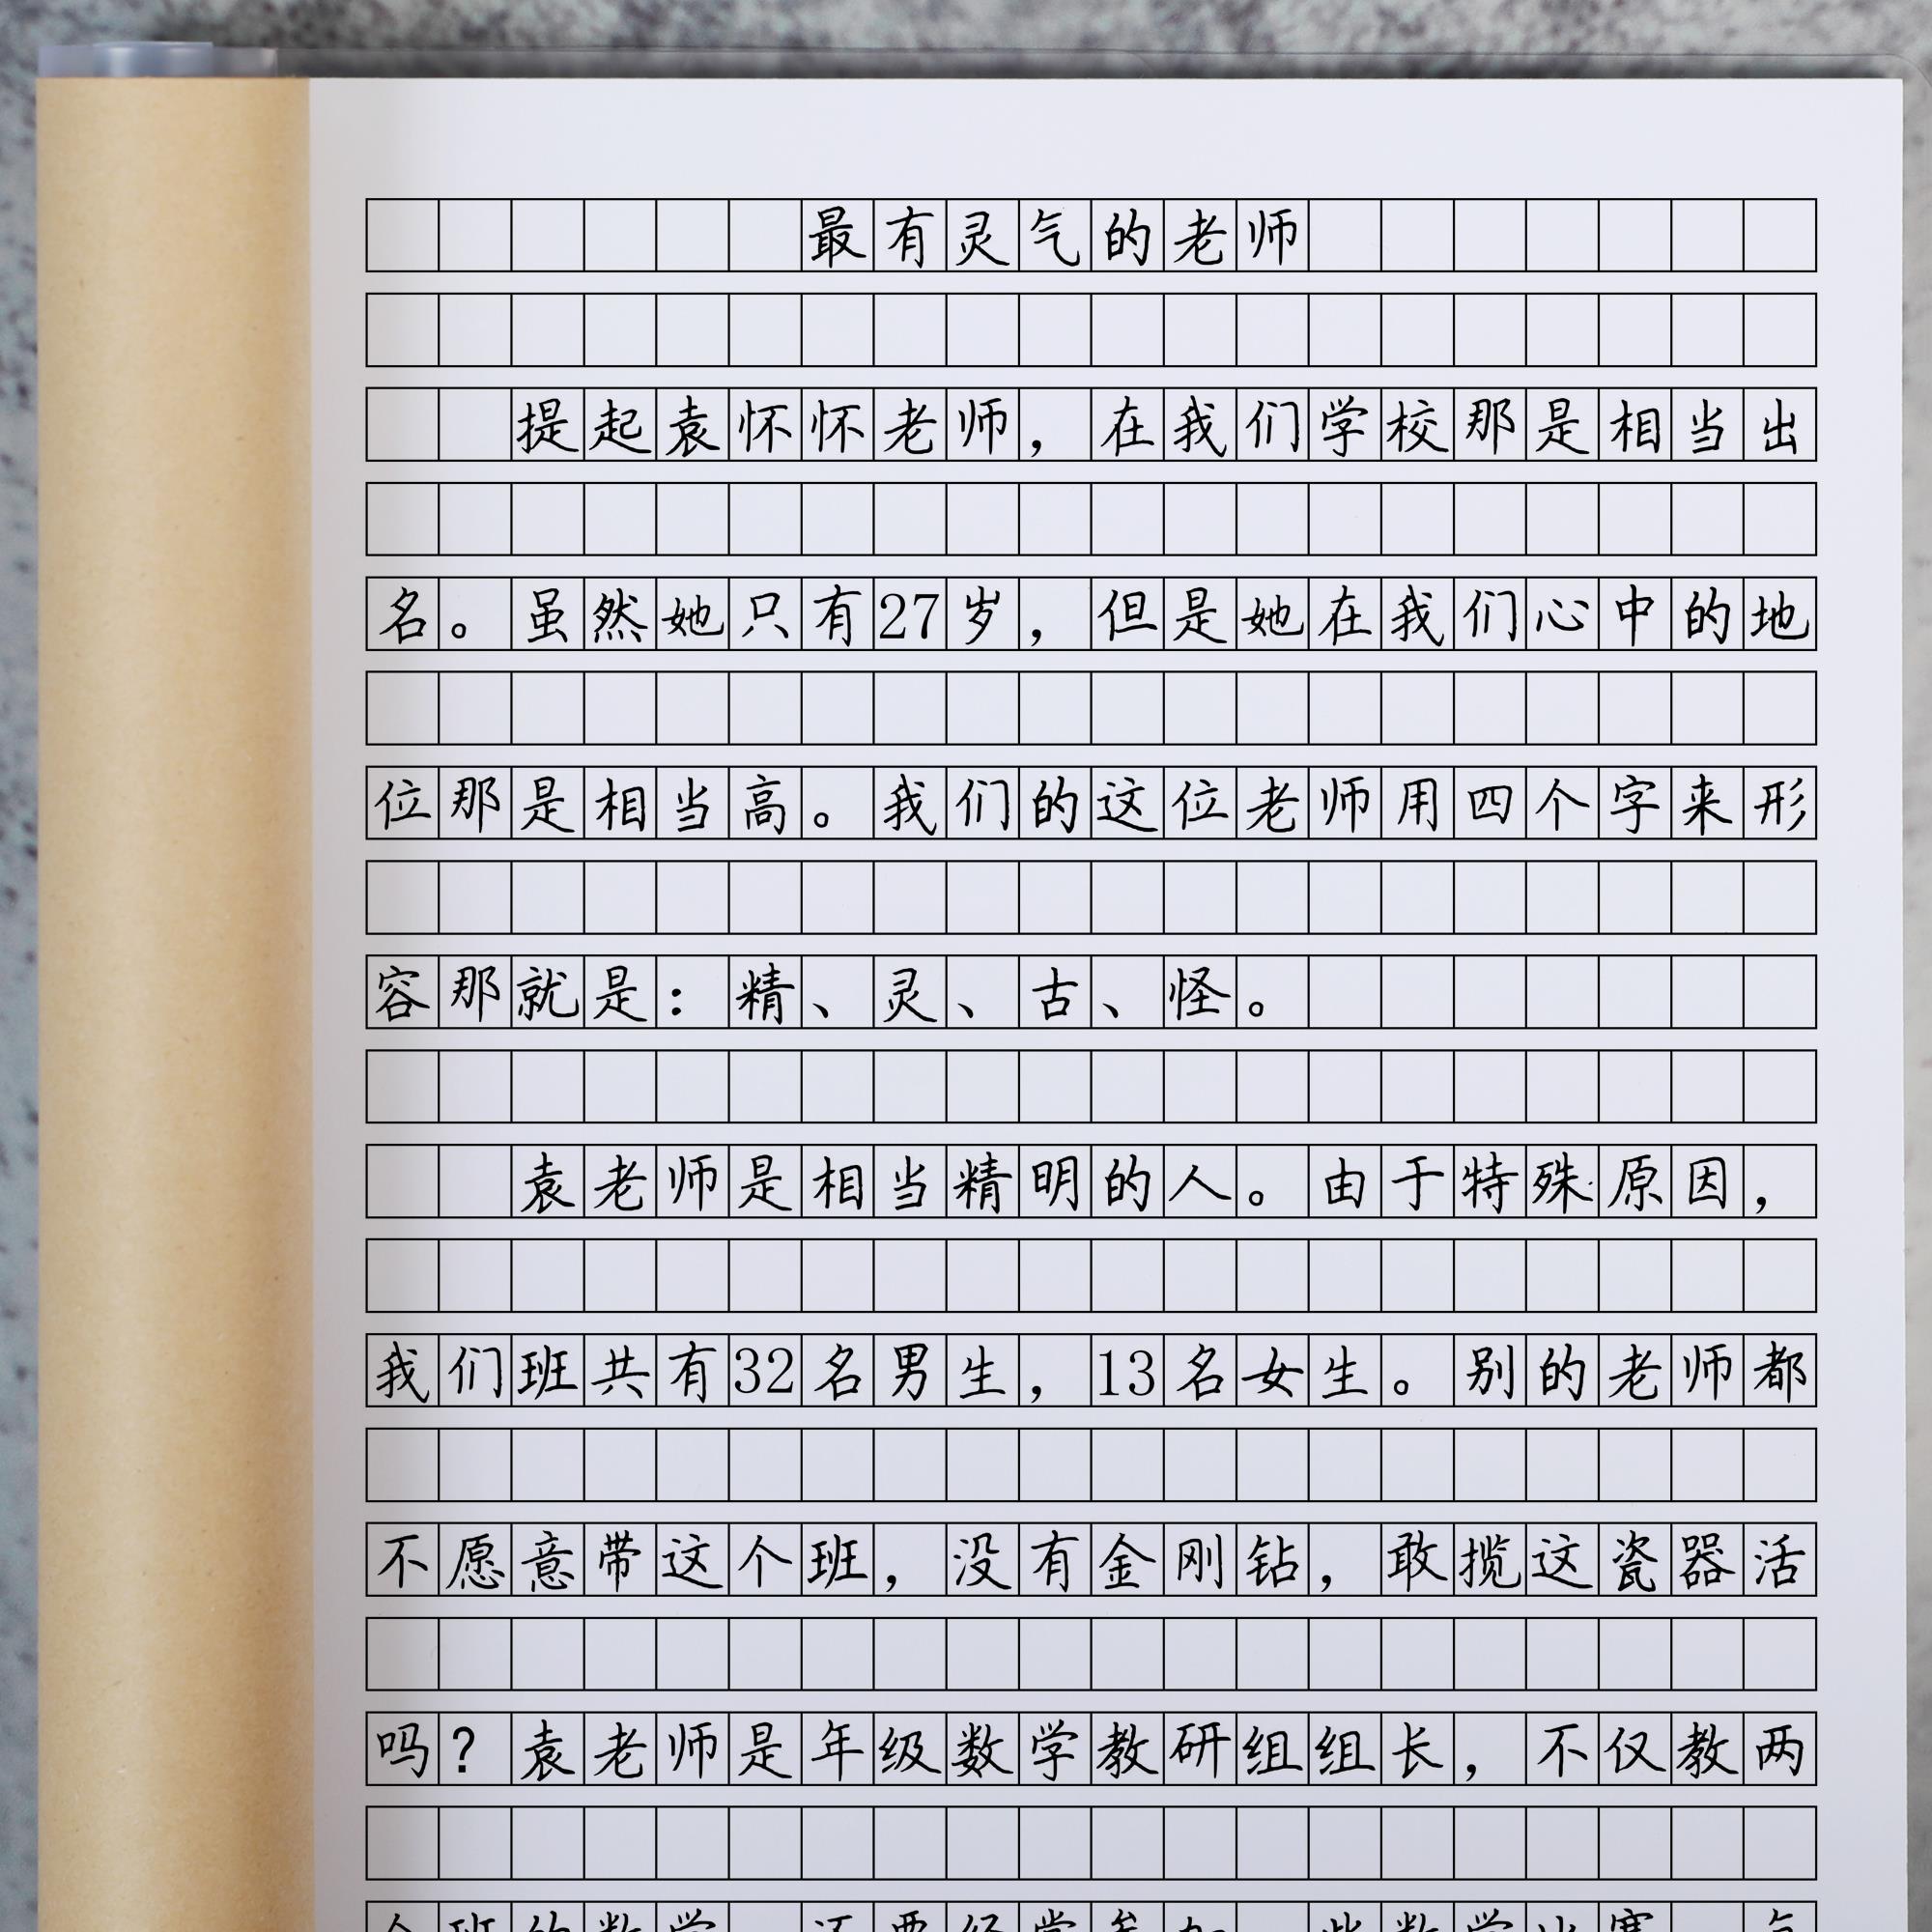 最有灵气的老师
提起袁怀怀老师，在我们学校那是相当出
名。虽然她只有27岁，但是她在我们心中的地
位那是相当高。我们的这位老师用四个字来形
容那就是：精、灵、古、怪。
袁老师是相当精明的人。由于特殊原因，
我们班共有32名男生，13名女生。别的老师都
不愿意带这个班，没有金刚钻，敢揽这瓷器活
吗？袁老师是年级数学教研组组长，不仅教两
个班的数学，还要经常参加一些数学比赛，